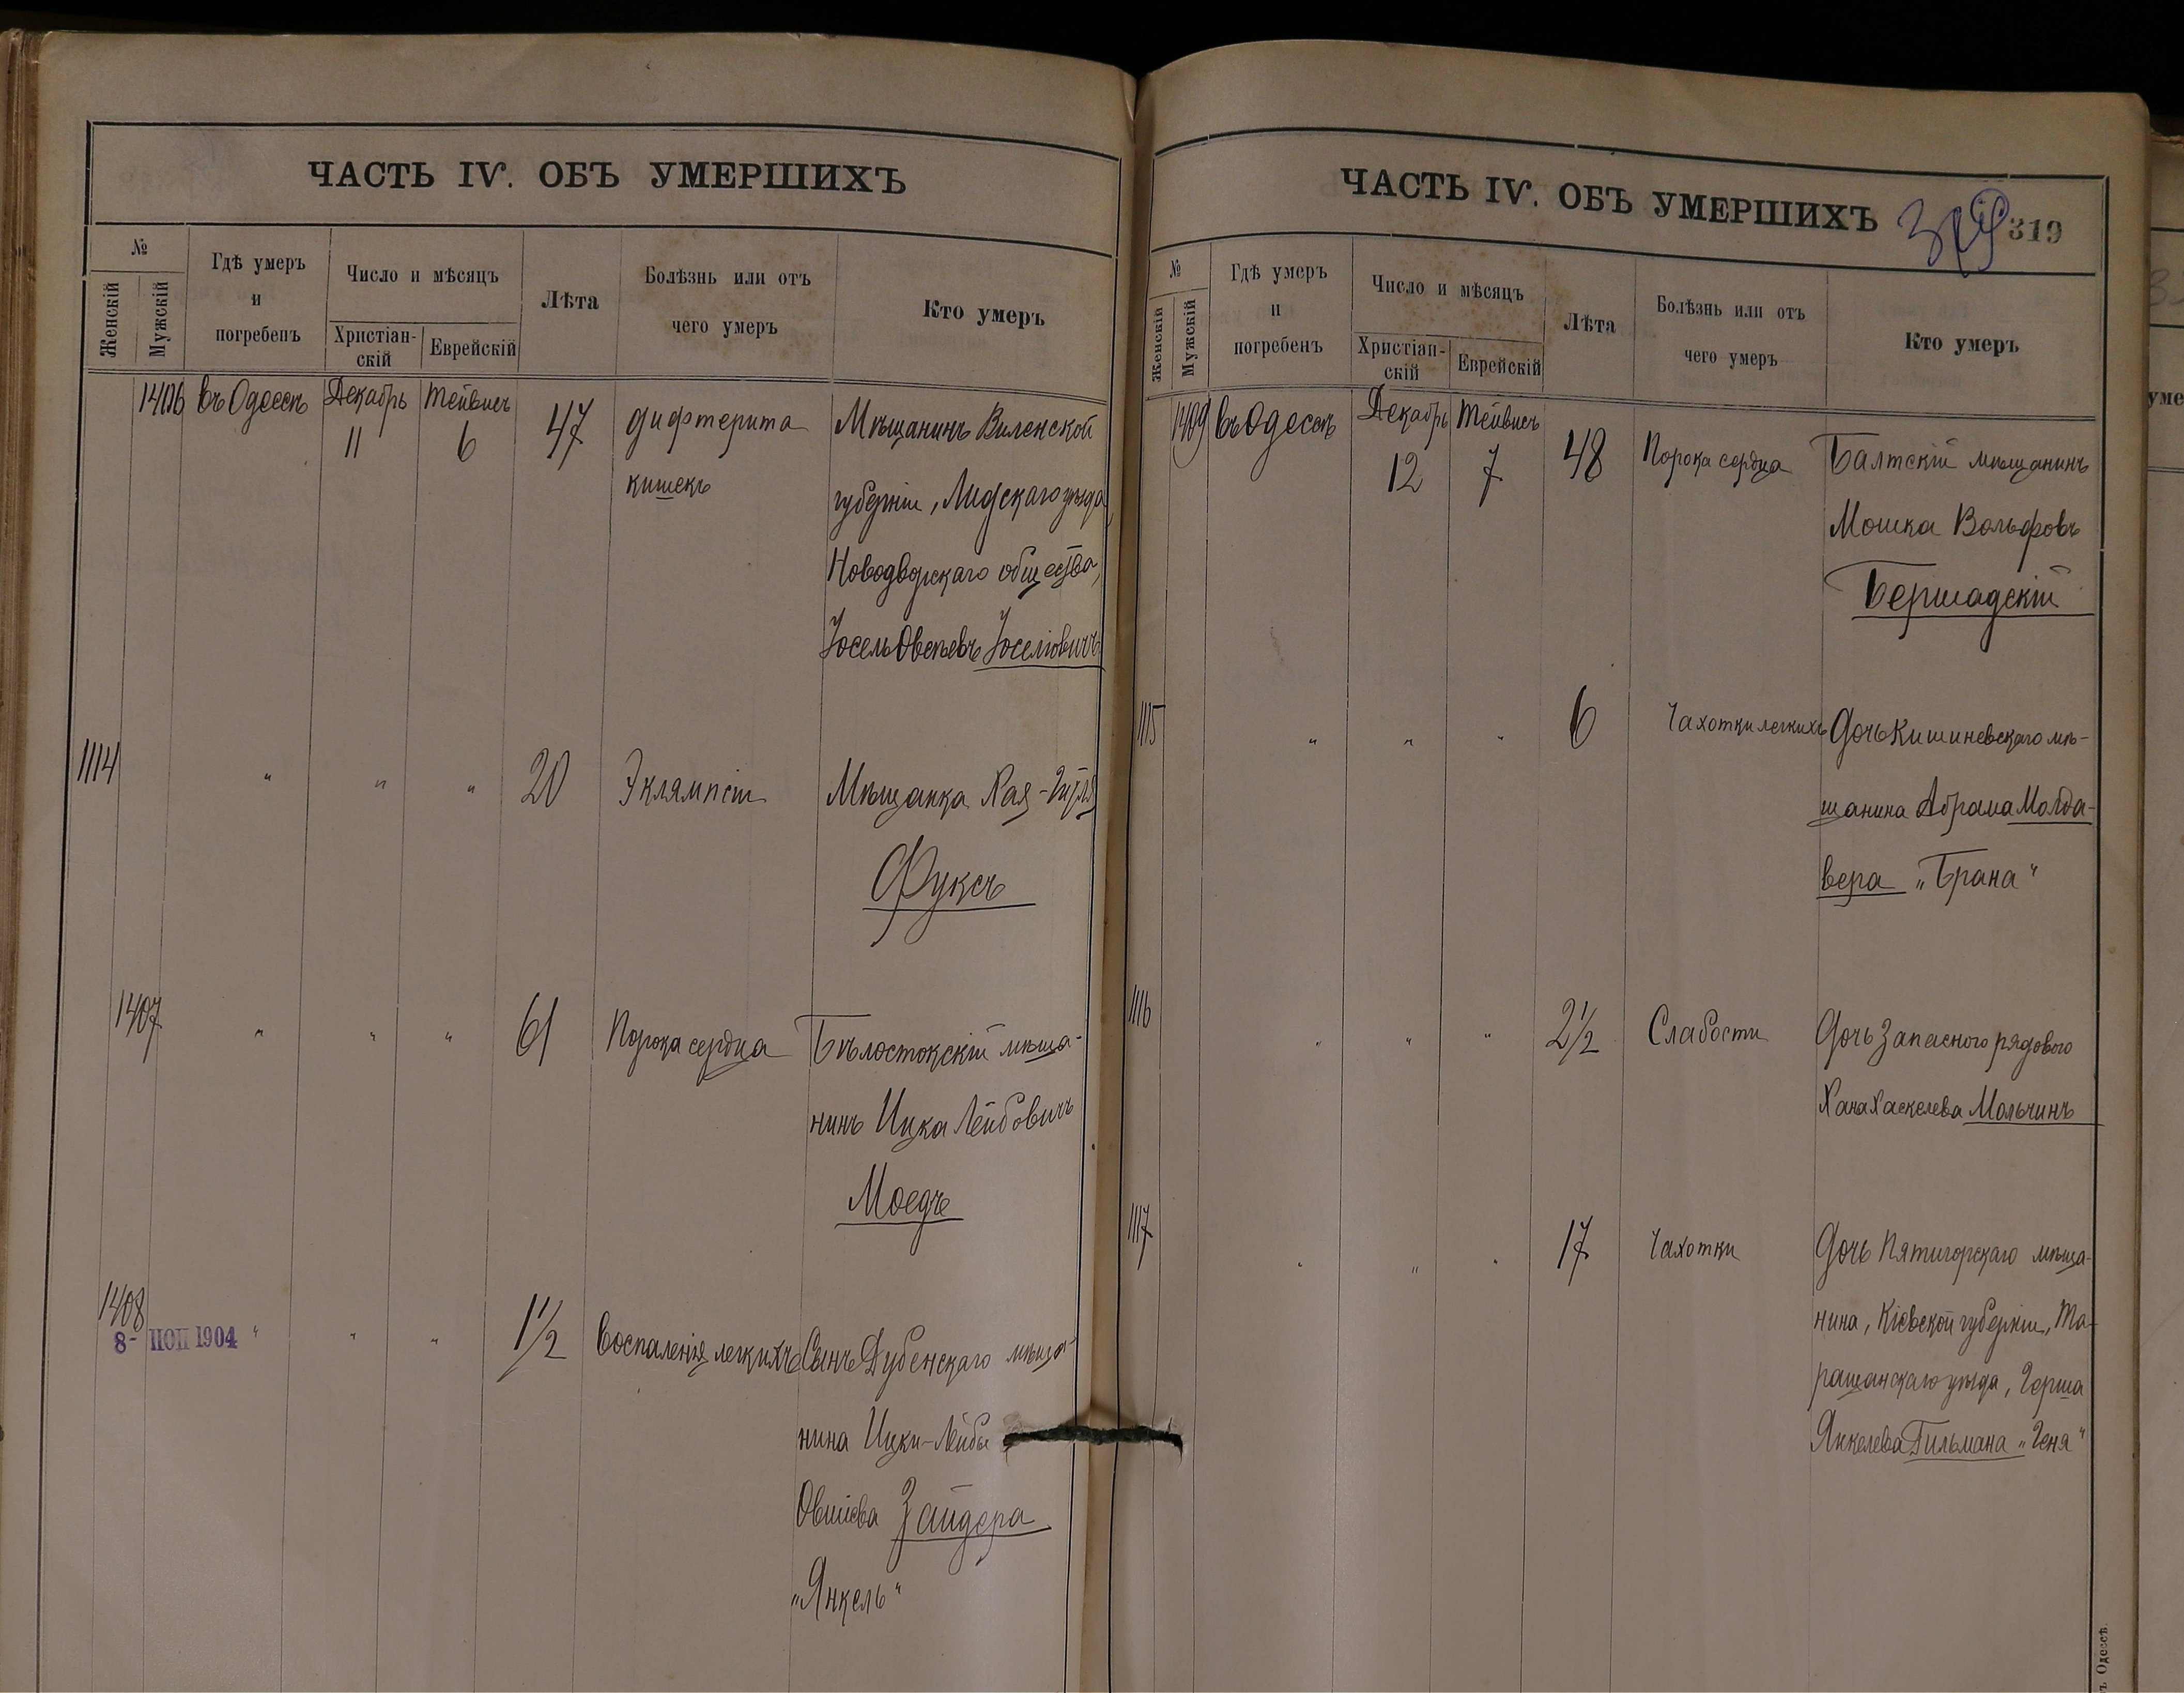 ЧАСТЬ IV. ОБЪ УМЕРШИХЪ
№
Женскій
Мужскій
Гдѣ умеръ
и
погребенъ
Число и мѣсяцъ
Христіан-
скій
Еврейскій
Лѣта
Болѣзнь или отъ
чего умеръ
Кто умеръ
1406 въ Одессѣ Декабрь Тейвисъ 47 дифтерита Мѣщанинъ Виленской
11 6 кишекъ
губерніи, Лидскаго уѣзда,
Новодворскаго общества,
Іосель Овсѣевъ Іоселіовичъ
1114 " " " 20 Эклямпсіи Мѣщанка Хая-Гитля
Фуксъ
1407 " " " 61 Порока сердца Бѣлостокскій мѣща-
нинъ Ицка Лейбовичъ
Моедъ
1408 " " " 1½ Воспаленія легкихъ Сынъ Дубенскаго мѣща-
8- ПОП 1904
нина Ицки-Лейбы
Овшіева Зайдера
"Янкель"
ЧАСТЬ IV. ОБЪ УМЕРШИХЪ 319 319
№
Женскій
Мужскій
Гдѣ умеръ
и
погребенъ
Число и мѣсяцъ
Христіан-
скій
Еврейскій
Лѣта
Болѣзнь или отъ
чего умеръ
Кто умеръ
1409 въ Одессѣ Декабрь Тейвисъ 48 Порока сердца Балтскій мѣщанинъ
12 7
Мошка Вольфовъ
Бершадскій
1115 " " " 6 Чахотки легкихъ Дочь Кишиневскаго мѣ-
щанина Абрама Молда-
вера "Брана"
1116 " " " 2½ Слабости Дочь Запасного рядового
Хана Хаскелева Мольчинъ
1117 " " " 17 Чахотки Дочь Пятигорскаго мѣща-
нина, Кіевской губерніи, Та-
ращанскаго уѣзда, Герша
Янкелева Гильмана "Геня"
ъ Одессѣ.
уме